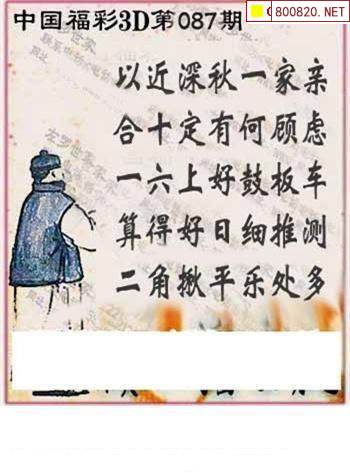 中国福彩3D第087期
800820.NET
以近深秋一家亲
合十定有何顾虑
一六上好鼓板车
算得好日细推测
二角揪平乐处多